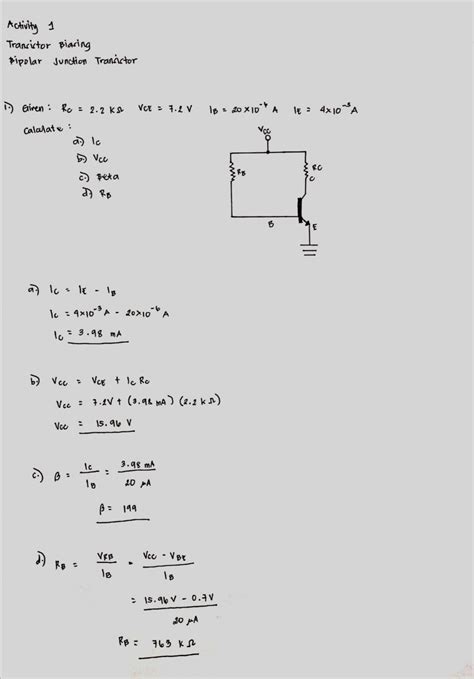 Activity 1
Transistor Biasing
Bipolar Junction Transistor
1.) Given : RC = 2.2 kΩ VCE = 7.2 V IB = 20x10⁻⁶ A IE = 4x10⁻³ A
Calculate :
a.) IC
b.) VCC
c.) Beta
d.) RB
VCC
RB
RC
C
B
E
a.) IC = IE - IB
IC = 4x10⁻³ A - 20x10⁻⁶ A
IC = 3.98 mA
b.) VCC = VCE + IC RC
VCC = 7.2V + (3.98 mA) (2.2 kΩ)
VCC = 15.96 V
c.) β = IC / IB = 3.98 mA / 20 μA
β = 199
d.) RB = VRB / IB = VCC - VBE / IB
= 15.96 V - 0.7 V / 20 μA
RB = 763 kΩ